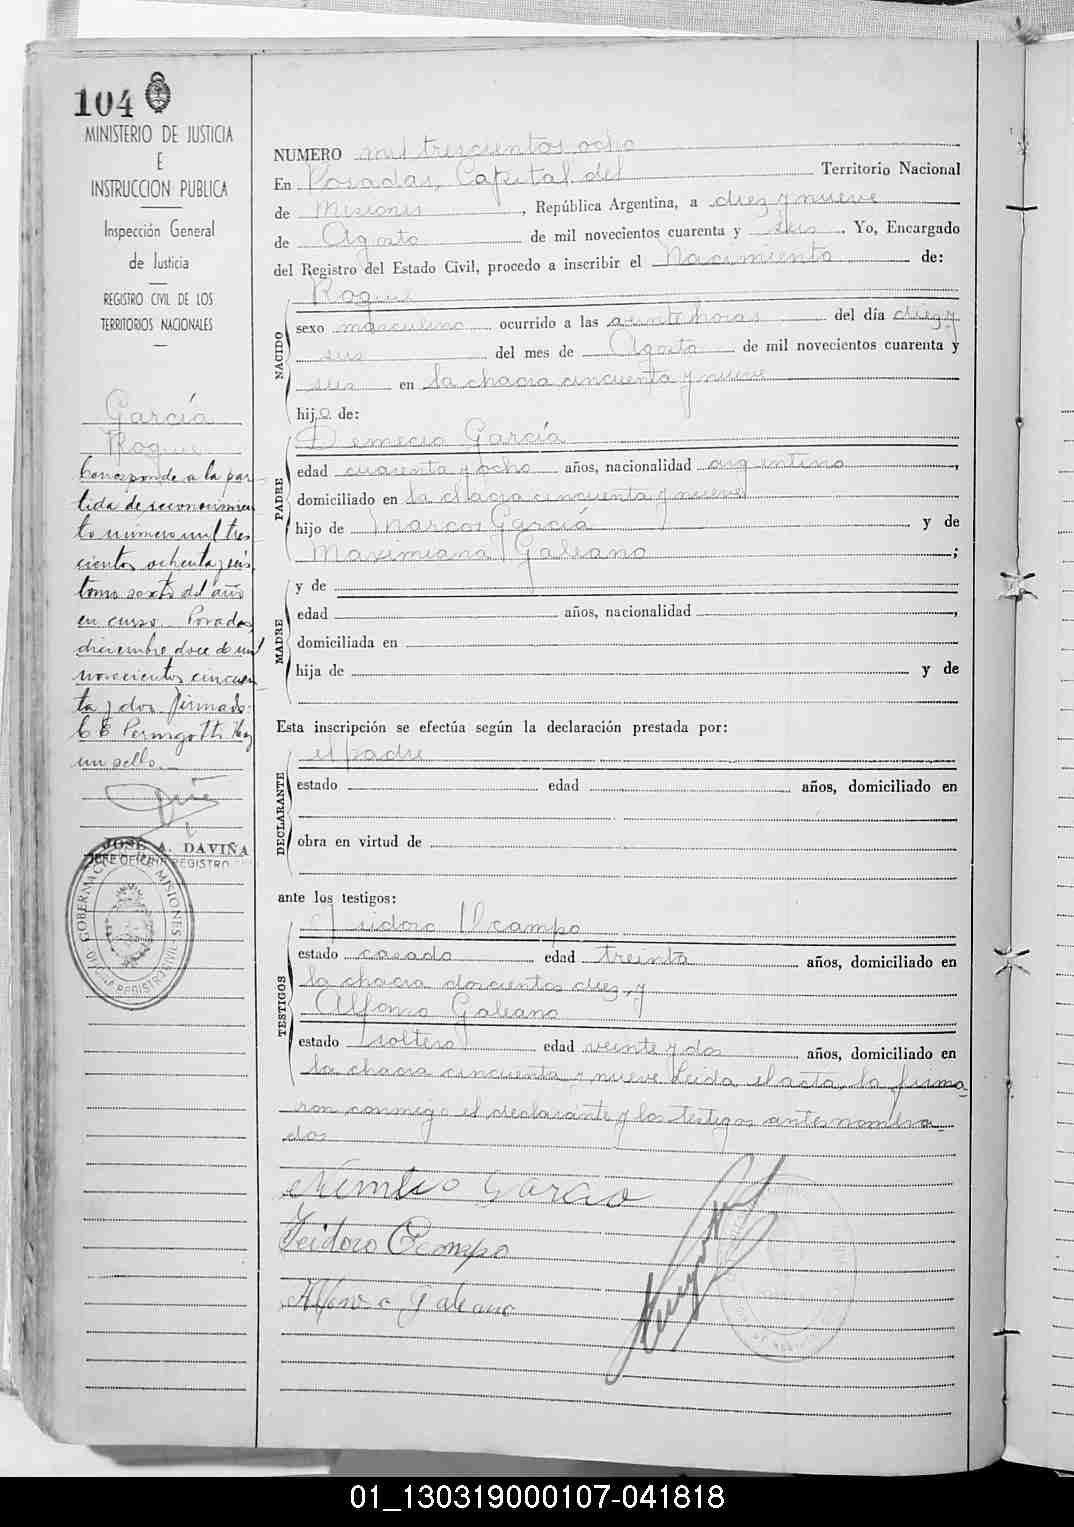 104
MINISTERIO DE JUSTICIA
E
INSTRUCCION PUBLICA
Inspección General
de Justicia
REGISTRO CIVIL DE LOS
TERRITORIOS NACIONALES
García
Roque
Corresponde a la par-
tida de reconocimien
to número mil tres
cientos ochenta y seis
tomo sexto del año
en curso. Posadas,
diciembre doce de mil
novecientos cincuen
ta y dos. Firmado:
C E Perugotti Hay
un sello.
JOSÉ A. DAVIÑA
JEFE OFICINA REGISTRO
GOBERNACION DE MISIONES
NUMERO mil trescientos ocho
En Posadas, Capital del Territorio Nacional
de Misiones, República Argentina, a diez y nueve
de Agosto de mil novecientos cuarenta y seis. Yo, Encargado
del Registro del Estado Civil, procedo a inscribir el Nacimiento de:
NACIDO
Roque
sexo masculino ocurrido a las veinte horas del día diez y
seis del mes de Agosto de mil novecientos cuarenta y
seis en la chacra cincuenta y nueve
hijo de:
PADRE
Demecio García
edad cuarenta y ocho años, nacionalidad argentino,
domiciliado en la chacra cincuenta y nueve
hijo de Marcos García y de
Maximiana Galeano;
MADRE
y de
edad años, nacionalidad ,
domiciliada en
hija de y de
Esta inscripción se efectúa según la declaración prestada por:
DECLARANTE
el padre
estado edad años, domiciliado en
obra en virtud de
ante los testigos:
TESTIGOS
Isidoro Ocampo
estado casado edad treinta años, domiciliado en
la chacra doscientos diez, y
Alfonso Galeano
estado soltero edad veinte y dos años, domiciliado en
la chacra cincuenta y nueve. Leida el acta, la firma-
ron conmigo el declarante y los testigos antes nombra-
dos.
Isidoro Ocampo
Alfonso Galeano
01_130319000107-041818